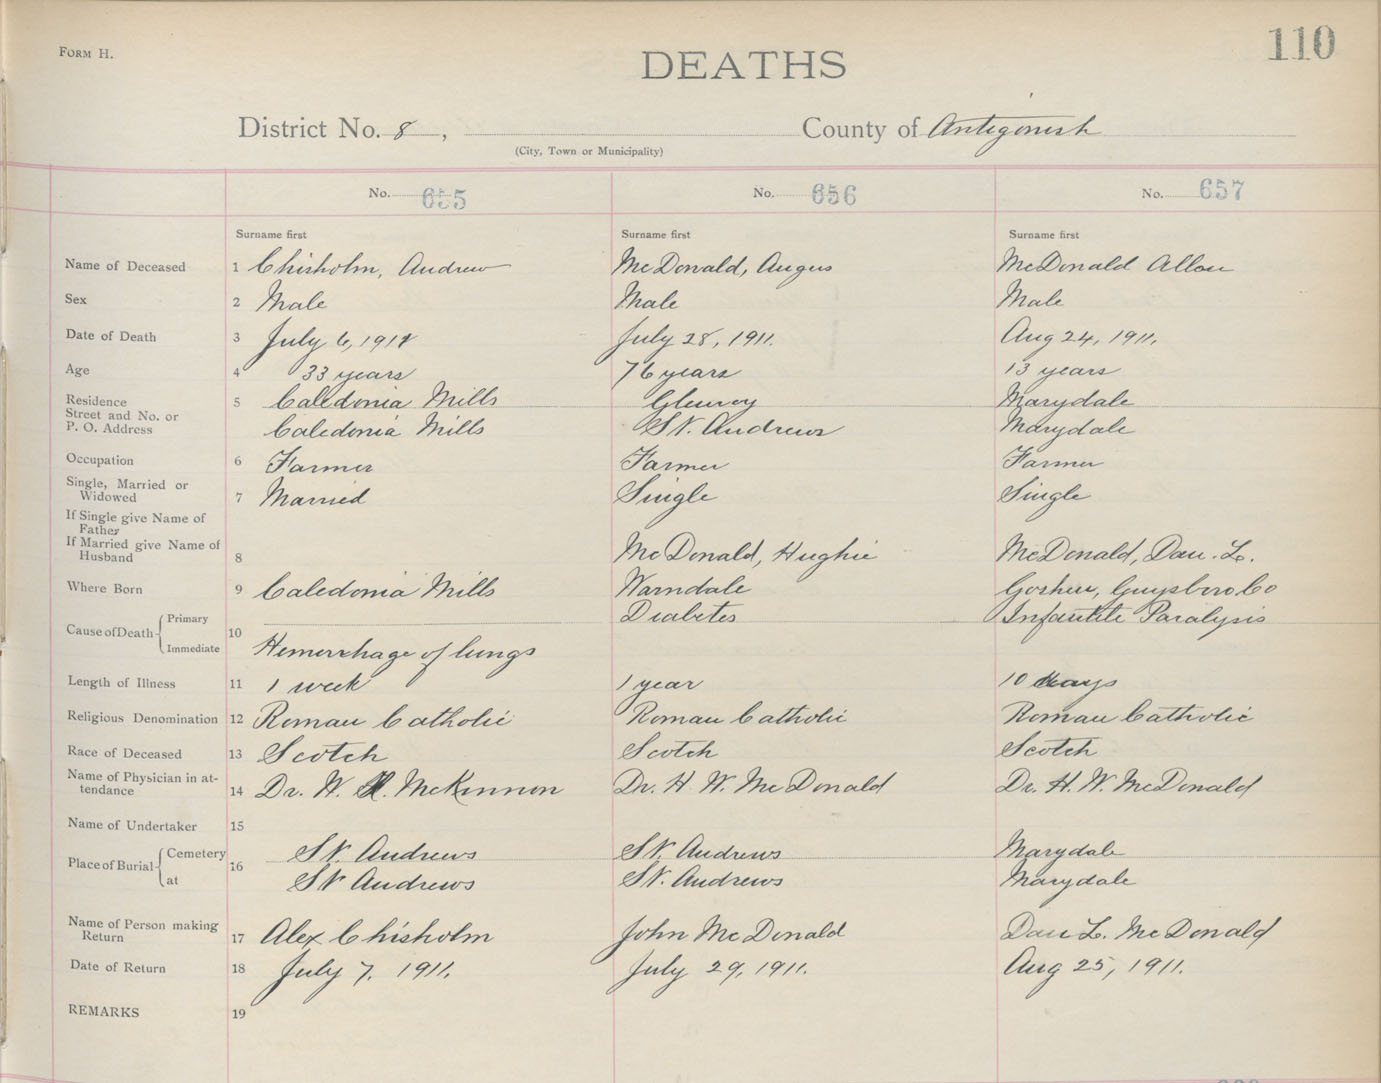 FORM H.
DEATHS
110
District No. 8, County of Antigonish
(City, Town or Municipality)
No. 655 No. 656 No. 657
Surname first Surname first Surname first
Name of Deceased 1 Chisholm, Andrew McDonald, Angus McDonald Allan
Sex 2 Male Male Male
Date of Death 3 July 6, 1911 July 28, 1911. Aug 24, 1911.
Age 4 33 years 76 years 13 years
Residence 5 Caledonia Mills Glenroy Marydale
Street and No. or
P. O. Address Caledonia Mills St. Andrews Marydale
Occupation 6 Farmer Farmer Farmer
Single, Married or
Widowed 7 Married Single Single
If Single give Name of
Father
If Married give Name of
Husband 8 McDonald, Hughie McDonald, Dan. L.
Where Born 9 Caledonia Mills Goshen, Guysboro Co
Cause of Death Primary 10 Diabetes Infantile Paralysis
Immediate Hemorrhage of lungs
Length of Illness 11 1 week 1 year 10 days
Religious Denomination 12 Roman Catholic Roman Catholic Roman Catholic
Race of Deceased 13 Scotch Scotch Scotch
Name of Physician in at-
tendance 14 Dr. W. H. McKinnon Dr. H. W. McDonald Dr. H. W. McDonald
Name of Undertaker 15
Place of Burial Cemetery 16 St. Andrews St. Andrews Marydale
at St Andrews St. Andrews Marydale
Name of Person making
Return 17 Alex Chisholm John McDonald Dan L. McDonald
Date of Return 18 July 7, 1911. July 29, 1911. Aug 25, 1911.
REMARKS 19